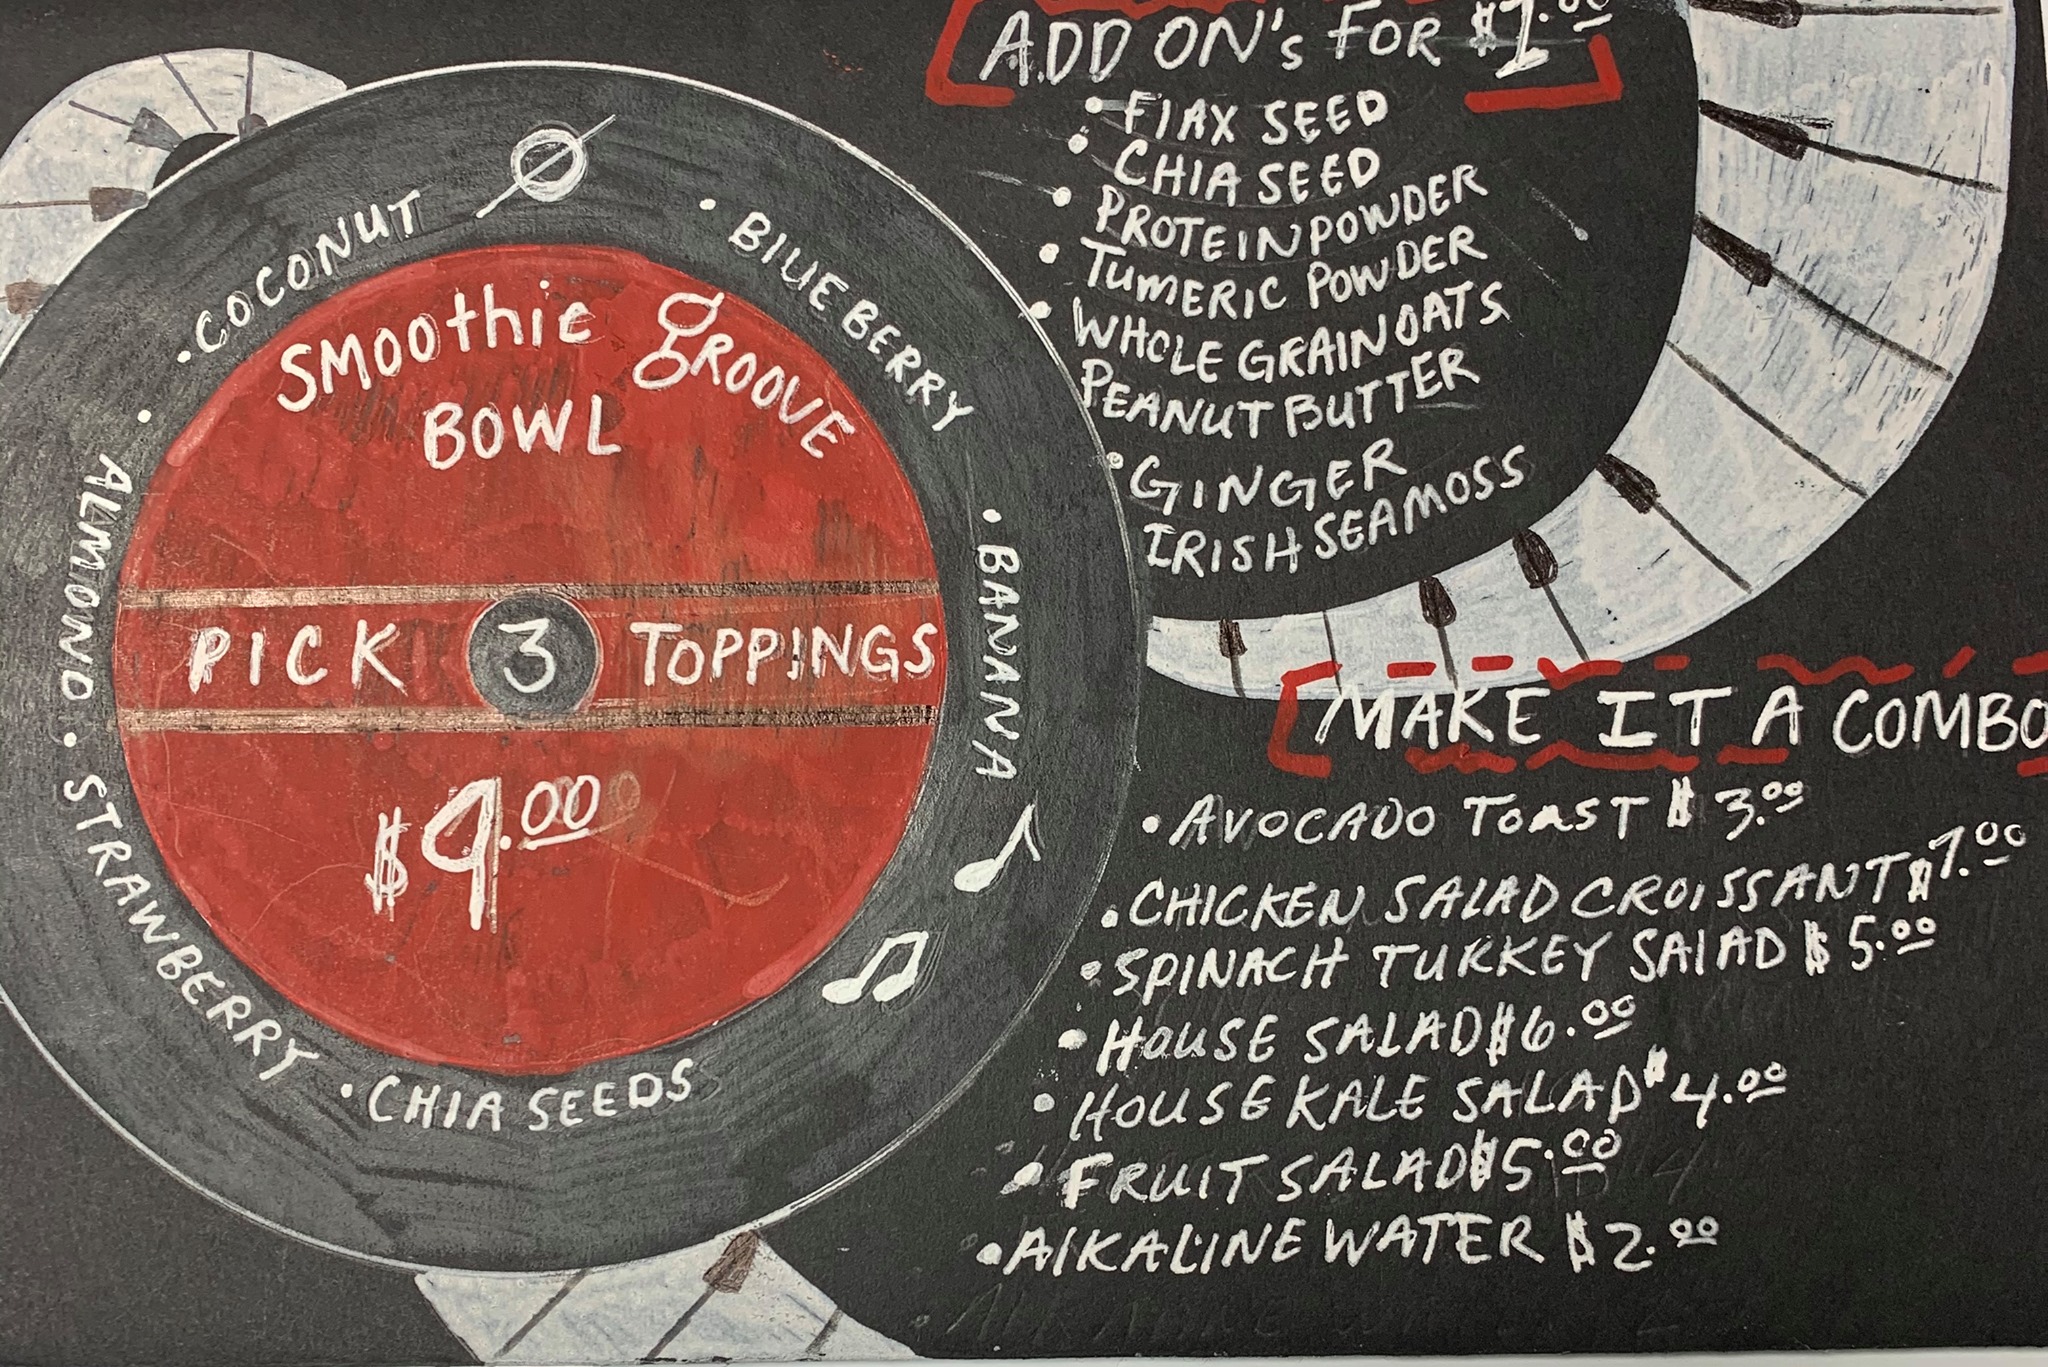 SMOOTHIE GROOVE
BOWL
PICK 3 TOPPINGS
$9.00
• COCONUT
• BlUEBERRY
• BANANA
• CHIA SEEDS
• STRAWBERRY
• ALMOND
ADD ON's FOR $1.00
• FlAX SEED
• CHIA SEED
• PROTEIN POWDER
• TUMERIC POWDER
• WHOLE GRAIN OATS
PEANUT BUTTER
• GINGER
IRISH SEAMOSS
MAKE IT A COMBO
• AVOCADO TOAST $3.00
• CHICKEN SALAD CROISSANT $7.00
• SPINACH TURKEY SAlAD $5.00
• HOUSE SALAD $6.00
• HOUSE KALE SALAD $4.00
• FRUIT SALAD $5.00
• AlKALINE WATER $2.00